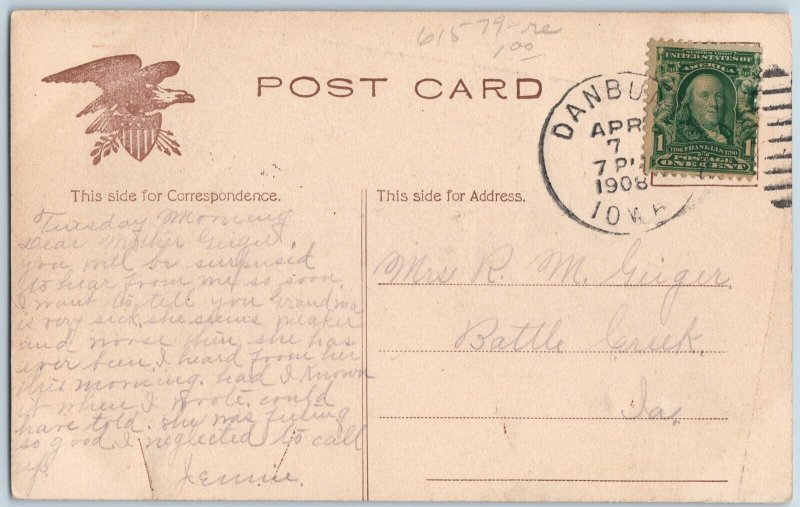 61579-re
1.00
POST CARD
DANBURY
APR
7
7 P
1908
IOWA
UNITED STATES OF
AMERICA
1706 FRANKLIN 1790
1 POSTAGE 1
ONE CENT
This side for Correspondence.
Tuesday Morning
Dear Mother Geiger.
you will be surprised
to hear from me so soon.
I want to tell you Grandma
is very sick, she seems weaker
and worse then she has
ever been. I heard from her
this morning. had I known
it when I wrote. could
have told. she was feeling
so good I neglected to call
up.
Jennie.
This side for Address.
Mrs R. M. Geiger.
Battle Creek.
Ia.